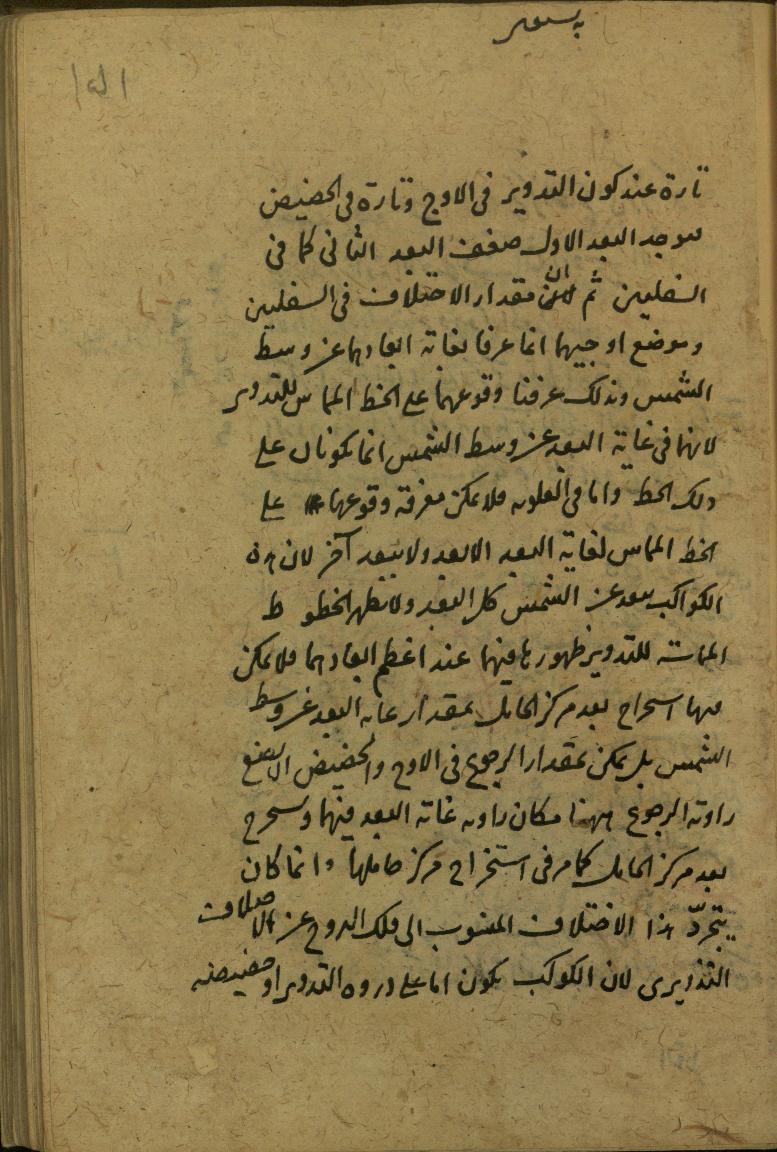 تارة عند كون التدوير فى الاوج وتارة فى الحضيض
فوجد البعد الاول ضعف البعد الثانى كما فى
السفليين ثم ان مقدار الاختلاف فى السفليين
وموضع اوجيهما انما عرفا بغاية ابعادهما عن وسط
الشمس وبذلك عرفنا وقوعهما على الخط المماس للتدوير
لانهما فى غاية البعد عن وسط الشمس انما يكونان على
ذلك الخط واما فى العلوية فلا يمكن معرفة وقوعها على
الخط المماس لغاية البعد الابعد ولا ببعد آخر لان هذه
الكواكب تبعد عن الشمس كل البعد ولا يظهر الخطوط
المماسة للتدوير ظهورها فيهما عند اعظم ابعادهما فلا يمكن
فيها استخراج بعد مركز الحامل بمقدار غاية البعد عن وسط
الشمس بل يمكن بمقدار الرجوع فى الاوج والحضيض اذ يقع
زاوية الرجوع ههنا مكان زاوية غاية البعد فيهما ويستخرج
بعد مركز الحامل كما مر فى استخراج مركز حاملها وانما كان
يتجرّد هذا الاختلاف المنسوب الى فلك البروج عن الاختلاف
التدويرى لان الكوكب يكون اما على ذروه التدوير او حضيضه